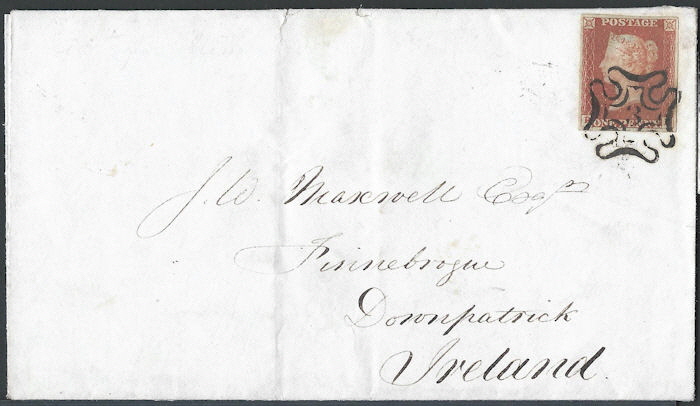 POSTAGE
ONE PENNY
3
J. W. Maxwell Esqr
Finnebrogue
Downpatrick
Ireland.